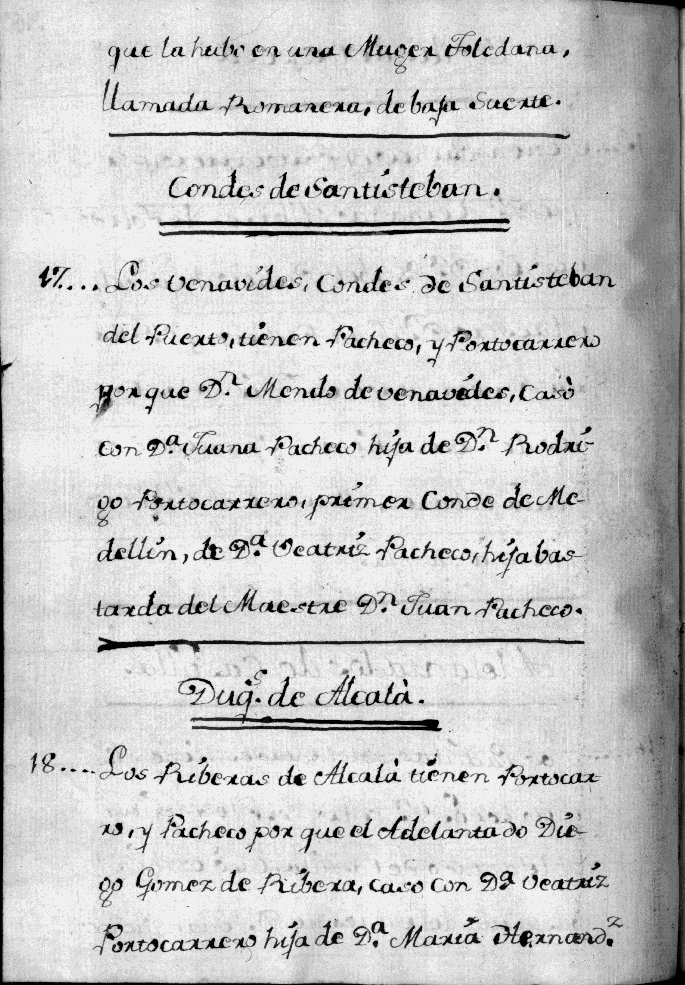 que la hubo en una Muger Toledana,
llamada Romanera, de baja Suerte.
Condes de Santisteban.
17.... Los Venavides, Condes de Santisteban
del Puerto, tienen Pacheco, y Portocarrero
porque Dn. Mendo de venavides, Casò
con Da. Juana Pacheco hija de Dn. Rodri-
go Portocarrero, primer Conde de Me-
dellin, de Da. Veatriz Pacheco, hija bas-
tarda del Maestre Dn. Juan Pacheco.
Duqs. de Alcalà.
18.... Los Riberas de Alcalà tienen Portocar
ro, y Pacheco por que el Adelantado Die-
go Gomez de Ribera, caso con Da. Veatriz
Portocarrero hija de Da. Maria Hernandz.